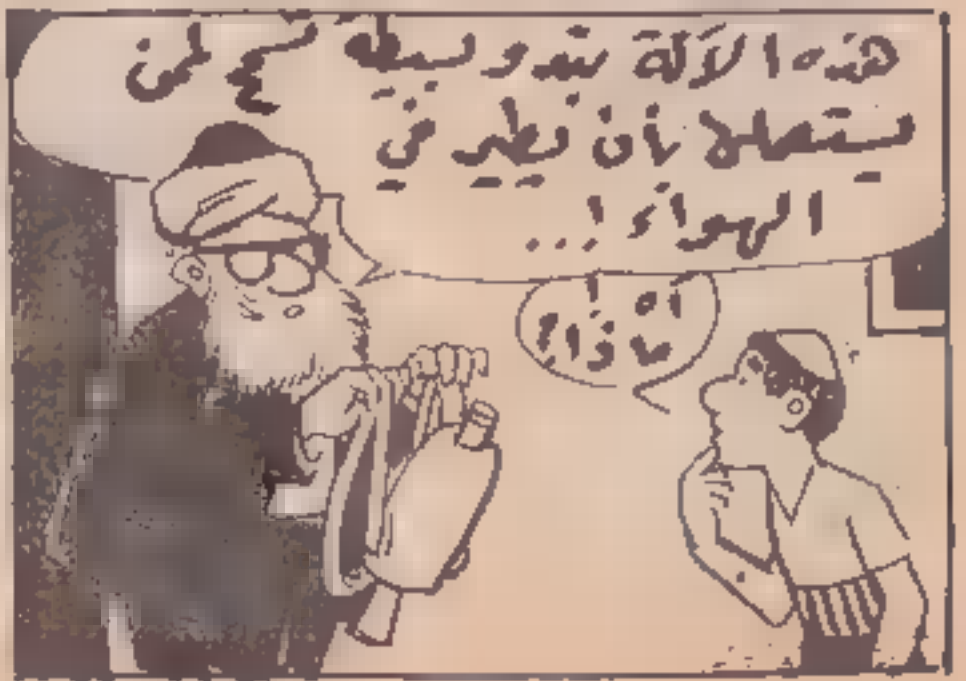 هذه الآلة تبدو بسيطة تسمح لمن
يستعملها بأن يطير في
الهواء !...
اه !
ماذا !